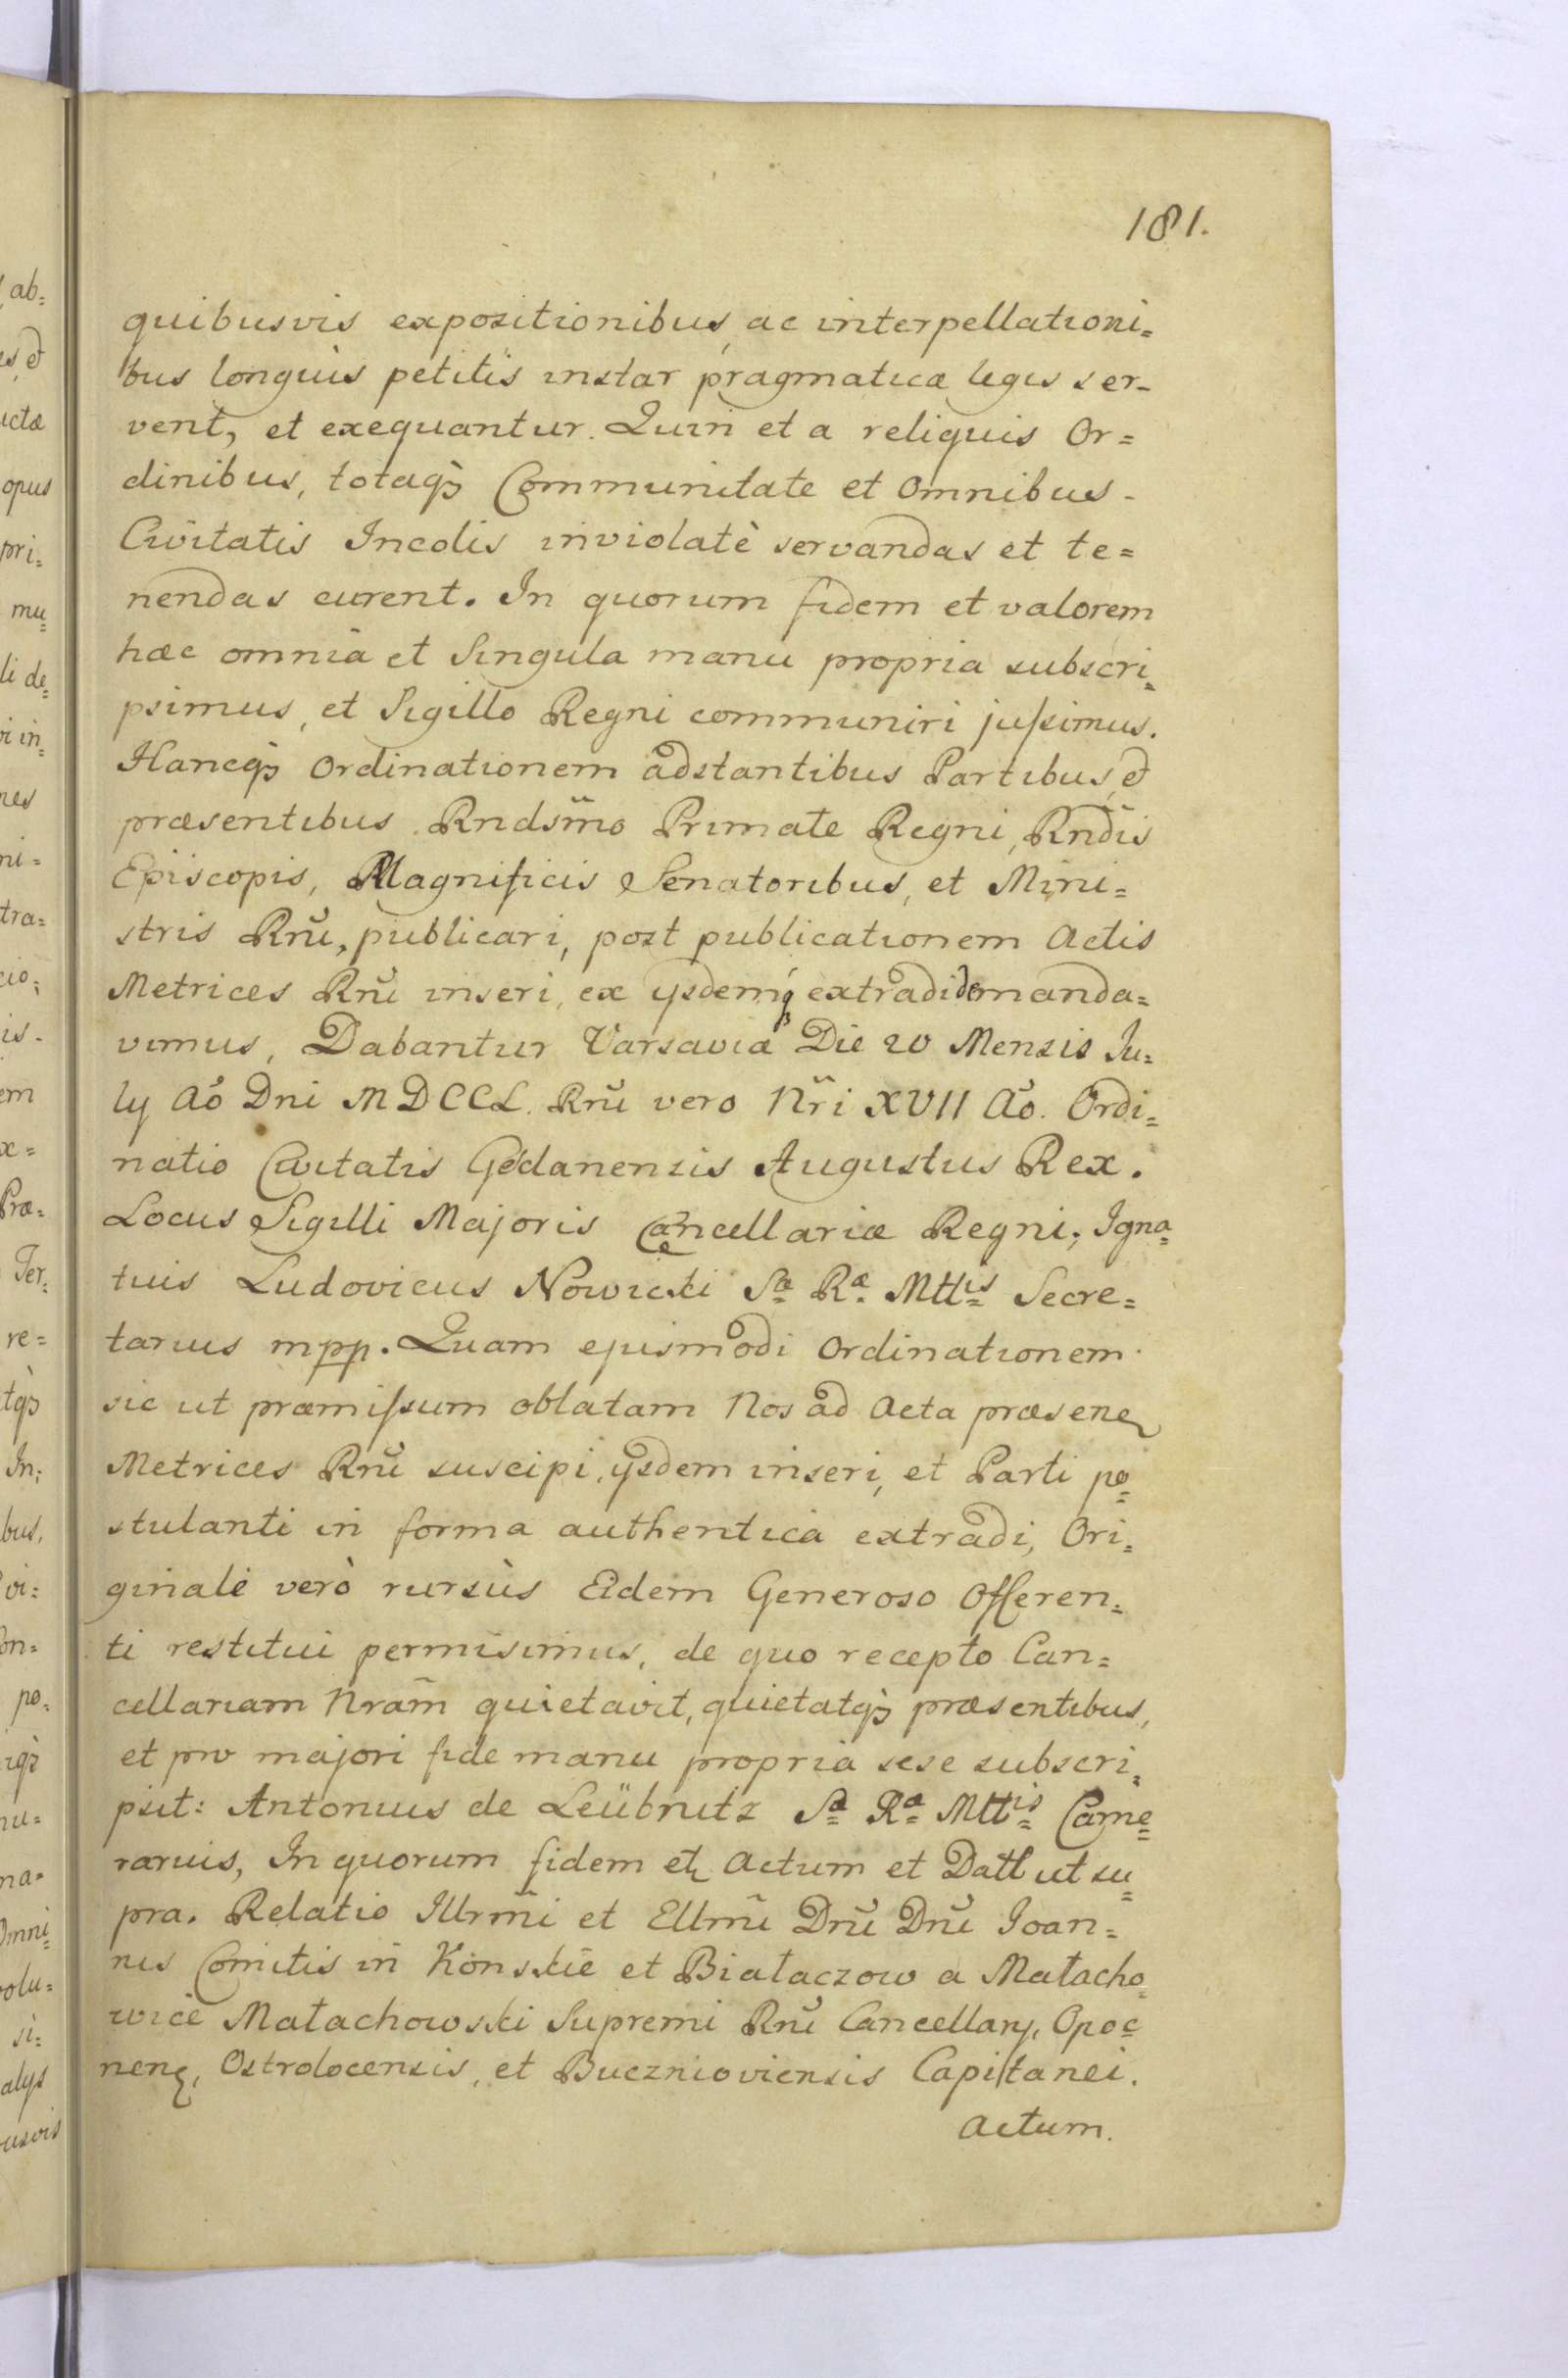 181.
quibusvis expositionibus, ac interpellationi=
bus longiùs petitis instar pragmaticæ legis ser-
vent, et exequantur. Quin et a reliquis Or=
dinibus, totaqꝫ Communitate et Omnibus-
Civitatis Incolis inviolatè servandas et te=
nendas curent. In quorum fidem et valorem
hæc omnia et Singula manu propria subscri=
psimus, et Sigillo Regni communiri jussimus.
Hancqꝫ Ordinationem adstantibus Partibus, et
præsentibus Rndsm̃o Primate Regni, Rndĩs
Episcopis, Magnificis Senatoribus, et Mini=
stris Rnũ, publicari, post publicationem Actis
Metrices Rnũ inseri, ex ysdemqꝫ extradi demanda=
vimus, Dabantur Varsaviæ Die 20 Mensis Ju=
ly Aõ Dni MDCCL. Rnũ vero Nr̃i XVII Aõ. Ordi=
natio Civitatis Gedanensis Augustus Rex.
Locus Sigilli Majoris Cancellariæ Regni, Igna=
tius Ludovicus Nowicki Sæ Ræ Mttis Secre=
tarius mpp. Quam ejusmodi Ordinationem
sic ut præmissum oblatam Nos ad Acta præsenę
Metrices Rnũ suscipi, ysdem inseri, et Parti po=
stulanti in forma authentica extradi, Ori=
ginale verò rursùs Eidem Generoso Offeren=
ti restitui permisimus, de quo recepto Can=
cellariam Nram̃ quietavit, quietatqꝫ præsentibus,
et pro majori fide manu propria sese subscri=
psit: Antonius de Leübnitz Sæ Ræ Mttis Came=
rarius, In quorum fidem etę Actum et Datt ut su=
pra. Relatio Illrm̃i et Ellmĩ Dnĩ Dnĩ Joan=
nis Comitis in Konskie et Białaczow a Małacho=
wice Małachowski Supremi Rnĩ Cancellary, Opoc=
nenę, Ostrolocensis, et Bucznioviensis Capitanei.
Actum.